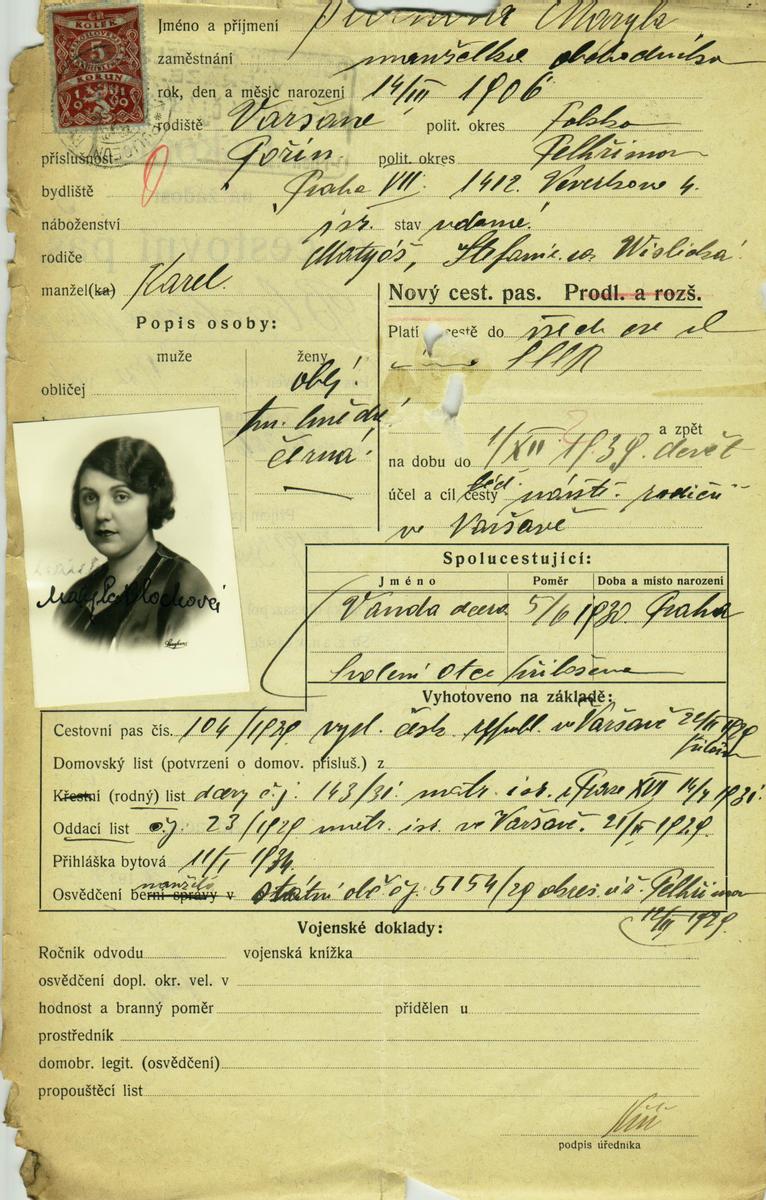 KOLEK
5
KORUN
Jméno a příjmení Maryla
zaměstnání manželka obchodníka
rok, den a měsíc narození 14/III 1906
rodiště Varšavě polit. okres Polsko
příslušnost Pořín polit. okres Pelhřimov
bydliště Praha VII. 1412. Veverkova 4.
náboženství isr. stav vdaná
rodiče Matyáš, Stefanie roz. Wislická
manžel(ka) Karel.
Nový cest. pas. Prodl. a rozš.
Popis osoby:
Platí cestě do všech
muže ženy
SSSR
obličej obl.
tm. hnědé
černá
a zpět
na dobu do 1/XII 1939. devět
účel a cíl cesty návšt. rodičů
ve Varšavě
Spolucestující:
Jméno Poměr Doba a místo narození
Vanda dcera 5/6 1930 Praha
Svolení otce přiloženo
Vyhotoveno na základě:
Cestovní pas čís. 104/1929 vyd. čsl. republ. ve Varšavě 22/II 1929
Domovský list (potvrzení o domov. přísluš.) z
Křestní (rodný) list dcery č.j. 143/31. matr. isr. Praze XVII 14/4 1931.
Oddací list č.j. 23/1929 matr. isr. ve Varšavě. 21/II 1929.
Přihláška bytová 11/I 1934.
manžela
Osvědčení berní správy v státní obč čj. 5154/29 okres. úř. Pelhřimov
12/II 1929.
Vojenské doklady:
Ročník odvodu vojenská knížka
osvědčení dopl. okr. vel. v
hodnost a branný poměr přidělen u
prostředník
domobr. legit. (osvědčení)
propouštěcí list
podpis úředníka